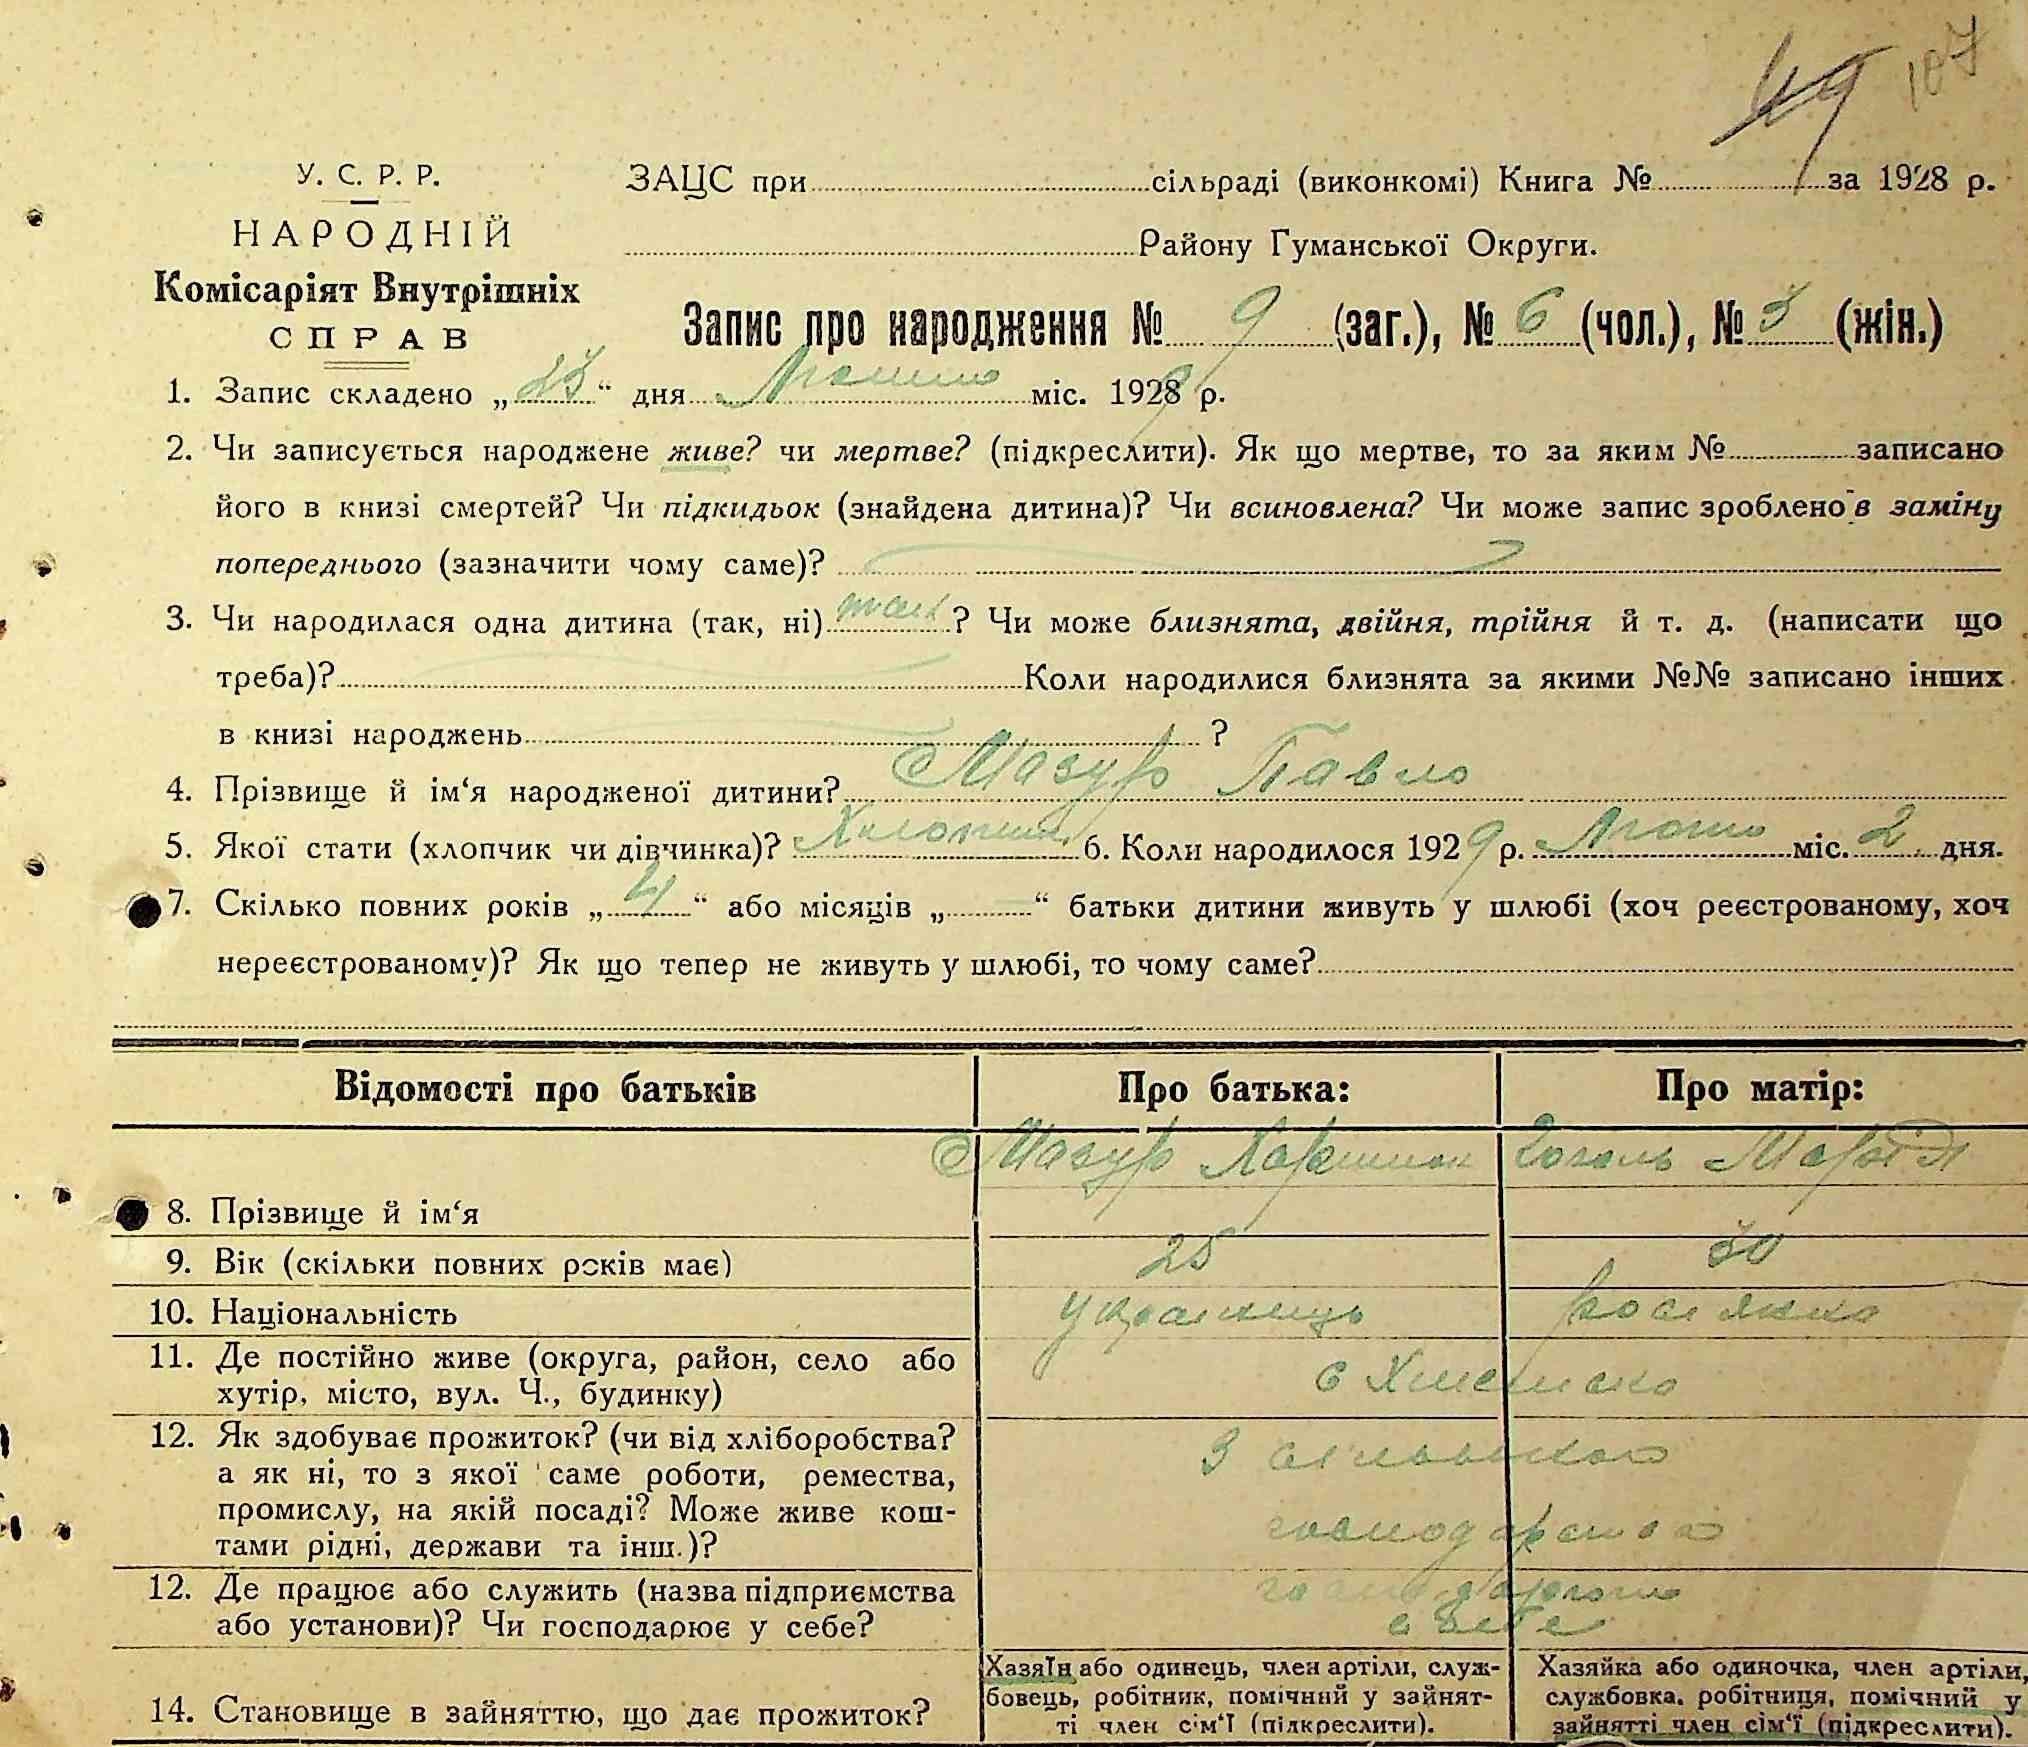 49 107
У. С. Р. Р.
НАРОДНІЙ
Комісаріят Внутрішніх
СПРАВ
ЗАЦС при сільраді (виконкомі) Книга № за 1928 р.
Району Гуманської Округи.
Запис про народження № 9 (заг.), № 6 (чол.), № 3 (жін.)
1. Запис складено „23“ дня Лютого міс. 1929 р.
2. Чи записується народжене живе? чи мертве? (підкреслити). Як що мертве, то за яким № записано
його в книзі смертей? Чи підкидьок (знайдена дитина)? Чи всиновлена? Чи може запис зроблено в заміну
попереднього (зазначити чому саме)?
3. Чи народилася одна дитина (так, ні) так? Чи може близнята, двійня, трійня й т. д. (написати що
треба)? Коли народилися близнята за якими №№ записано інших
в книзі народжень ?
4. Прізвище й ім‘я народженої дитини? Мазур Павло
5. Якої стати (хлопчик чи дівчинка)? Хлопчик 6. Коли народилось 1929 р. Лютого міс. 2 дня.
7. Скілько повних років „4“ або місяців „ “ батьки дитини живуть у шлюбі (хоч реєстрованому, хоч
нереєстрованому)? Як що тепер не живуть у шлюбі, то чому саме?
Відомості про батьків Про батька: Про матір:
8. Прізвище й ім‘я Мазур Гоголь Марія
9. Вік (скільки повних років має) 25 30
10. Національність Українець росіянка
11. Де постійно живе (округа, район, село або
хутір, місто, вул. Ч., будинку)
12. Як здобуває прожиток? (чи від хліборобства? З сільського
а як ні, то з якої саме роботи, ремества,
промислу, на якій посаді? Може живе кош- господарства
тами рідні, держави та інш.)?
12. Де працює або служить (назва підприємства
або установи)? Чи господарює у себе? в себе
14. Становище в зайняттю, що дає прожиток?
Хазяїн або одинець, член артіли, служ-
бовець, робітник, помічний у зайнят-
ті член сім‘ї (підкреслити).
Хазяйка або одиночка, член артіли,
службовка, робітниця, помічний у
зайнятті член сім‘ї (підкреслити).